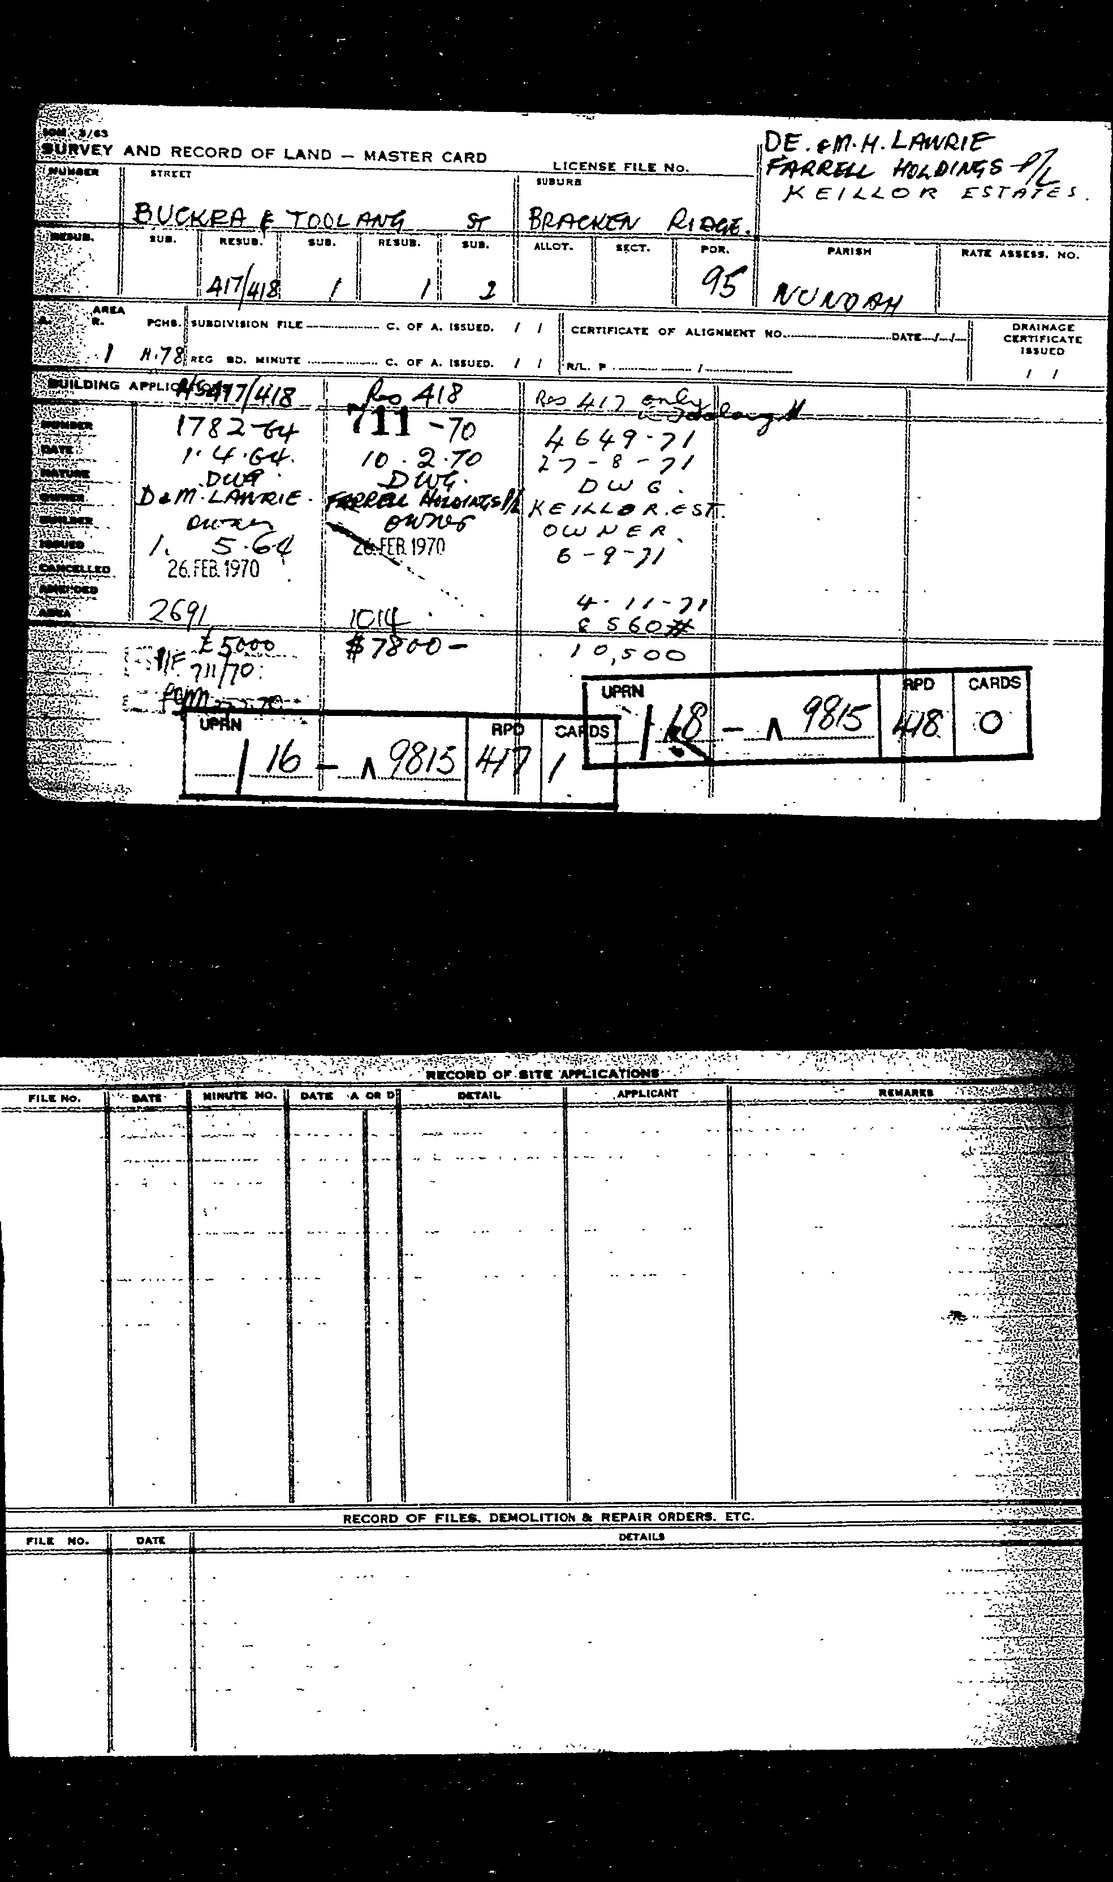 SURVEY AND RECORD OF LAND — MASTER CARD
LICENSE FILE No.
DE. & M. H. LAWRIE
FARRELL HOLDINGS P/L
KEILLOR ESTATES.
NUMBER STREET SUBURB
BUCKRA & TOOLANG ST BRACKEN RIDGE.
RESUB. SUB. RESUB. SUB. RESUB. SUB. ALLOT. SECT. POR. PARISH RATE ASSESS. NO.
417/418 1 1 2 95 NUNDAH
AREA
R. PCHS. SUBDIVISION FILE C. OF A. ISSUED. / / CERTIFICATE OF ALIGNMENT NO. DATE / / DRAINAGE CERTIFICATE ISSUED
1 REG BD. MINUTE C. OF A. ISSUED. / / R/L. P / / /
BUILDING APPLIC 417/418 Res 418 Res 417 only
Toolang St
NUMBER 1782-64 711-70 4649-71
DATE 1.4.64. 10.2.70 27-8-71
NATURE DWG. DWG. DWG.
OWNER D&M. LAWRIE. FARRELL HOLDINGS P/L KEILLOR. EST.
BUILDER owner owner OWNER.
ISSUED 1. 5.64 26. FEB. 1970 6-9-71
CANCELLED 26. FEB. 1970
AMENDED 4-11-71
AREA 2691 1014
£5000 $7800- 10,500
711/70.
UPRN RPD CARDS
/ 18 - 9815 418 0
UPRN RPD CARDS
/ 16 - 9815 417 1
RECORD OF SITE APPLICATIONS
FILE No. DATE MINUTE NO. DATE A OR D DETAIL APPLICANT REMARKS
RECORD OF FILES, DEMOLITION & REPAIR ORDERS, ETC.
FILE NO. DATE DETAILS